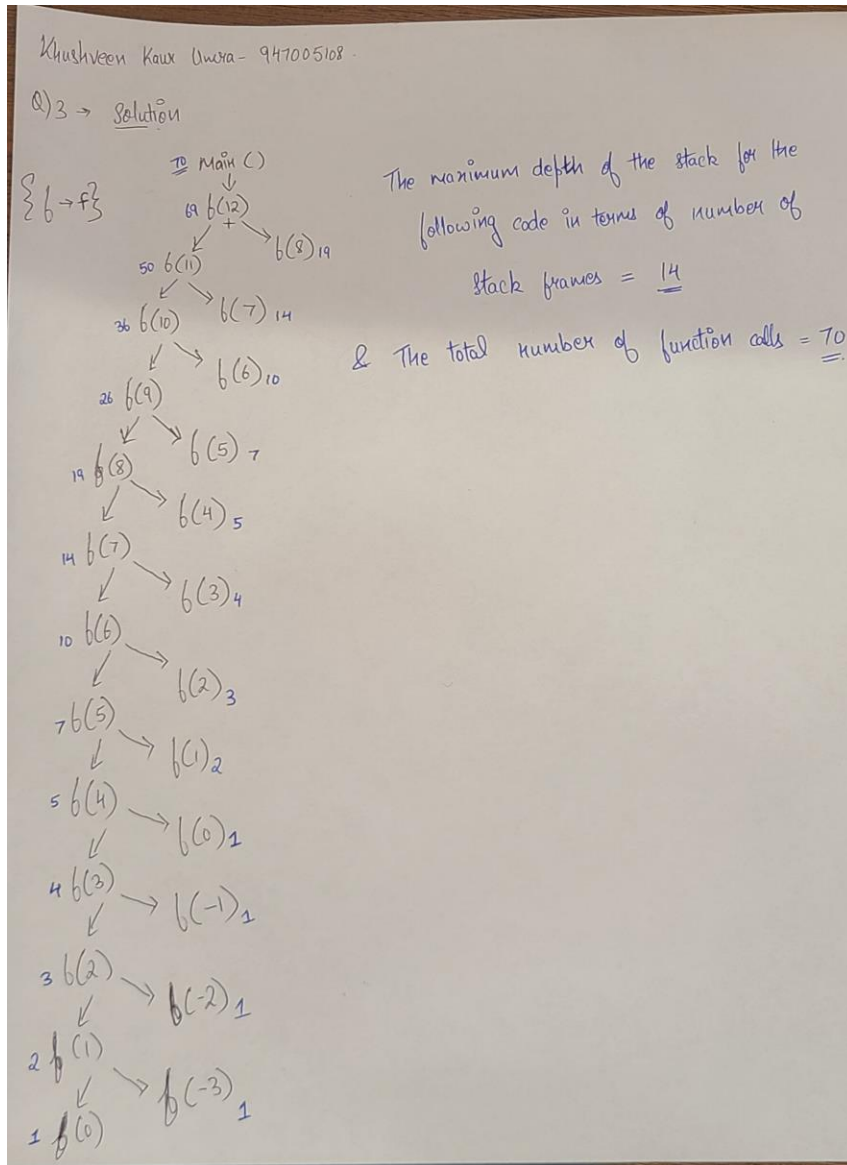 Khushveen Kaur Umra - 947005108.
Q) 3 → Solution
70 Main ()
{ b → f }
69 b(12)
+
b(8) 19
50 b(11)
b(7) 14
36 b(10)
b(6) 10
26 b(9)
b(5) 7
19 b(8)
b(4) 5
14 b(7)
b(3) 4
10 b(6)
b(2) 3
7 b(5)
b(1) 2
5 b(4)
b(0) 1
4 b(3)
b(-1) 1
3 b(2)
b(-2) 1
2 b(1)
b(-3) 1
1 b(0)
The maximum depth of the stack for the
following code in terms of number of
stack frames = 14
& The total number of function calls = 70